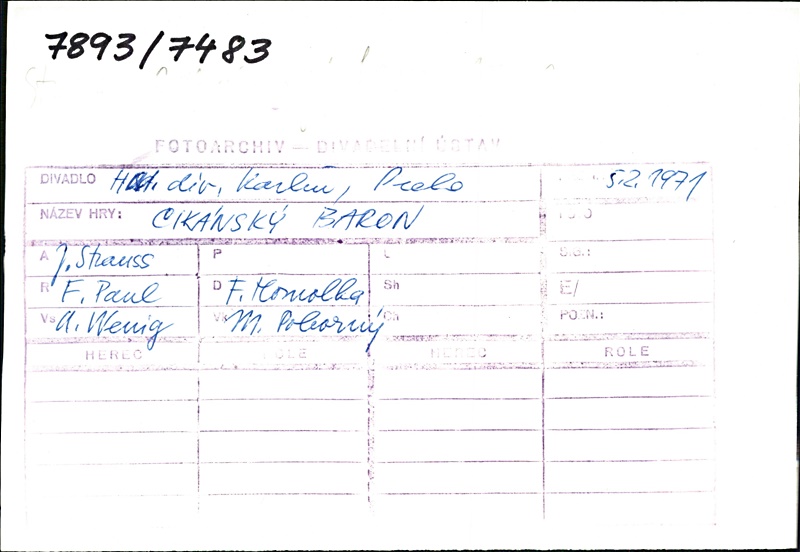 7893/7483
FOTOARCHIV — DIVADELNÍ ÚSTAV
DIVADLO Hud. div. Karlín, Praha 5.2.1971
NÁZEV HRY: CIKÁNSKÝ BARON
A J. Strauss P L S.G.:
R F. Paul D F. Homolka Sh E/
Vs A. Wenig M. Pokorný Ch POZN.:
HEREC ROLE HEREC ROLE